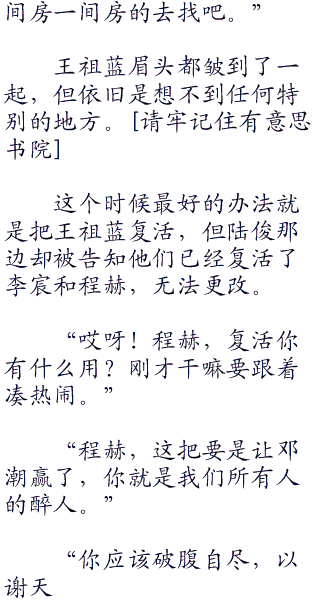 间房一间房的去找吧。”
王祖蓝眉头都皱到了一
起，但依旧是想不到任何特
别的地方。[请牢记住有意思
书院]
这个时候最好的办法就
是把王祖蓝复活，但陆俊那
边却被告知他们已经复活了
李宸和程赫，无法更改。
“哎呀！程赫，复活你
有什么用？刚才干嘛要跟着
凑热闹。”
“程赫，这把要是让邓
潮赢了，你就是我们所有人
的醉人。”
“你应该破腹自尽，以
谢天